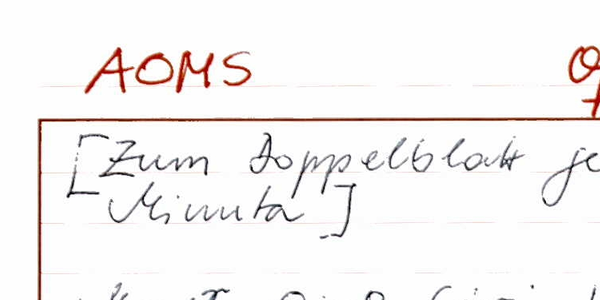 AOMS
[Zum Doppelblatt ge
Minuta]